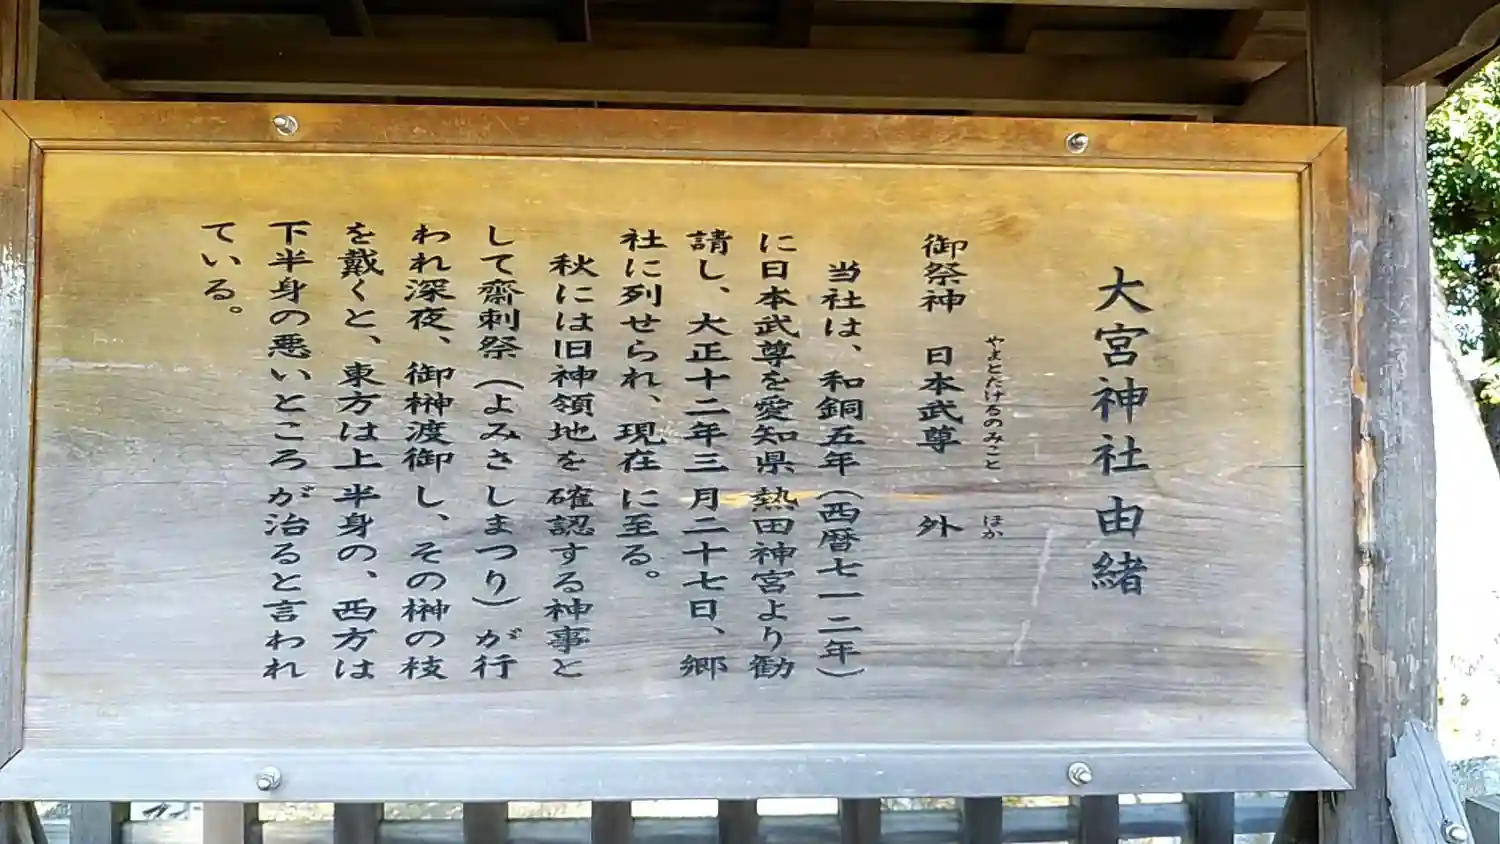 大宮神社由緒
やまとたけるのみこと ほか
御祭神 日本武尊 外
当社は、和銅五年（西暦七一二年）
に日本武尊を愛知県熱田神宮より勧
請し、大正十二年三月二十七日、郷
社に列せられ、現在に至る。
秋には旧神領地を確認する神事と
して齋刺祭（よみさしまつり）が行
われ深夜、御榊渡御し、その榊の枝
を戴くと、東方は上半身の、西方は
下半身の悪いところが治ると言われ
ている。